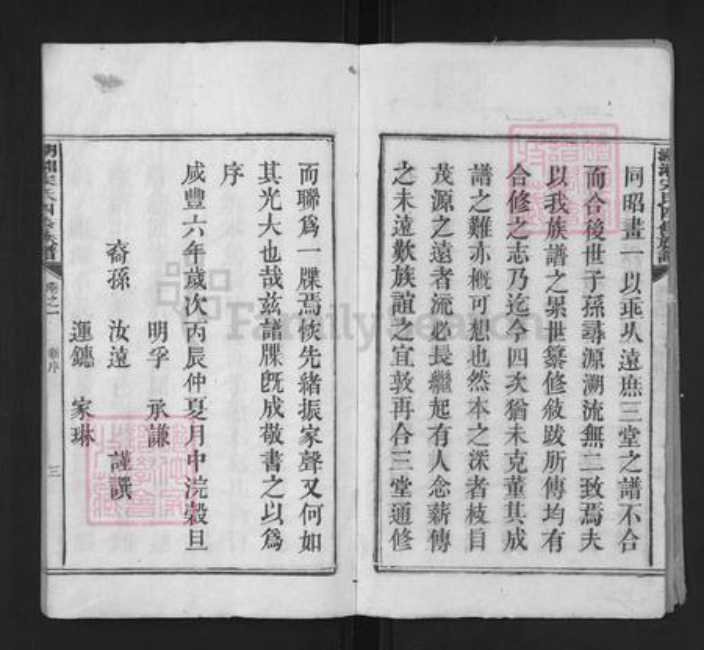 同昭畫一以乖乆遠庶三堂之譜不合
而合後世子孫尋源溯流無二致焉夫
以我族譜之累世纂修敍跋所傳均有
合修之志乃迄今四次猶未克董其成
譜之難亦概可想也然本之深者枝自
茂源之遠者流必長繼起有人念薪傳
之未遠歎族誼之宜敦再合三堂通修
而聯爲一牒焉恢先緒振家聲又何如
其光大也哉兹譜牒旣成敬書之以爲
序
咸豐六年歲次丙辰仲夏月中浣穀旦
明孚 承謙
裔孫 汝遠 謹譔
運鏸 家琳
卷之一
三
FamilySearch